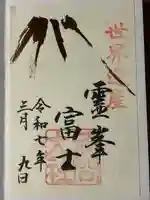 世界遺産
靈峯
富士
令和七年
三月
九日